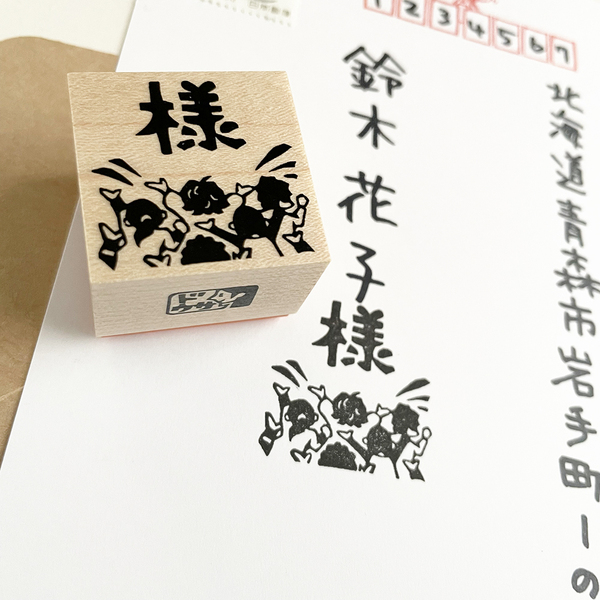 1234567
北海道青森市岩手町一の
鈴木花子様
様